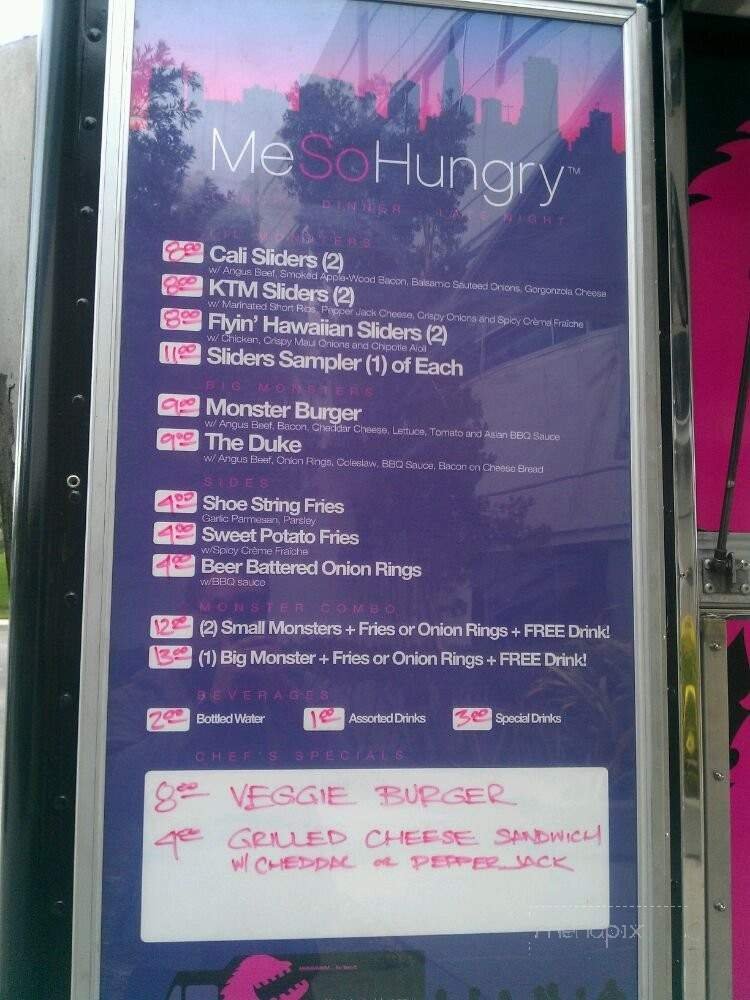 MeSoHungry™
DINNER LATE NIGHT
LIL MONSTERS
8.00 Cali Sliders (2)
w/ Angus Beef, Smoked Apple-Wood Bacon, Balsamic Sauteed Onions, Gorgonzola Cheese
8.00 KTM Sliders (2)
w/ Marinated Short Ribs, Pepper Jack Cheese, Crispy Onions and Spicy Crème Fraîche
8.00 Flyin' Hawaiian Sliders (2)
w/ Chicken, Crispy Maui Onions and Chipotle Aioli
11.00 Sliders Sampler (1) of Each
BIG MONSTERS
9.00 Monster Burger
w/ Angus Beef, Bacon, Cheddar Cheese, Lettuce, Tomato and Asian BBQ Sauce
9.00 The Duke
w/ Angus Beef, Onion Rings, Coleslaw, BBQ Sauce, Bacon on Cheese Bread
SIDES
4.00 Shoe String Fries
Garlic Parmesan, Parsley
4.00 Sweet Potato Fries
w/Spicy Crème Fraîche
4.00 Beer Battered Onion Rings
w/BBQ sauce
MONSTER COMBO
12.00 (2) Small Monsters + Fries or Onion Rings + FREE Drink!
13.00 (1) Big Monster + Fries or Onion Rings + FREE Drink!
BEVERAGES
2.00 Bottled Water 1.00 Assorted Drinks 3.00 Special Drinks
CHEF'S SPECIALS
8.00 VEGGIE BURGER
4.00 GRILLED CHEESE SANDWICH
W/ CHEDDAR or PEPPER JACK
menupix